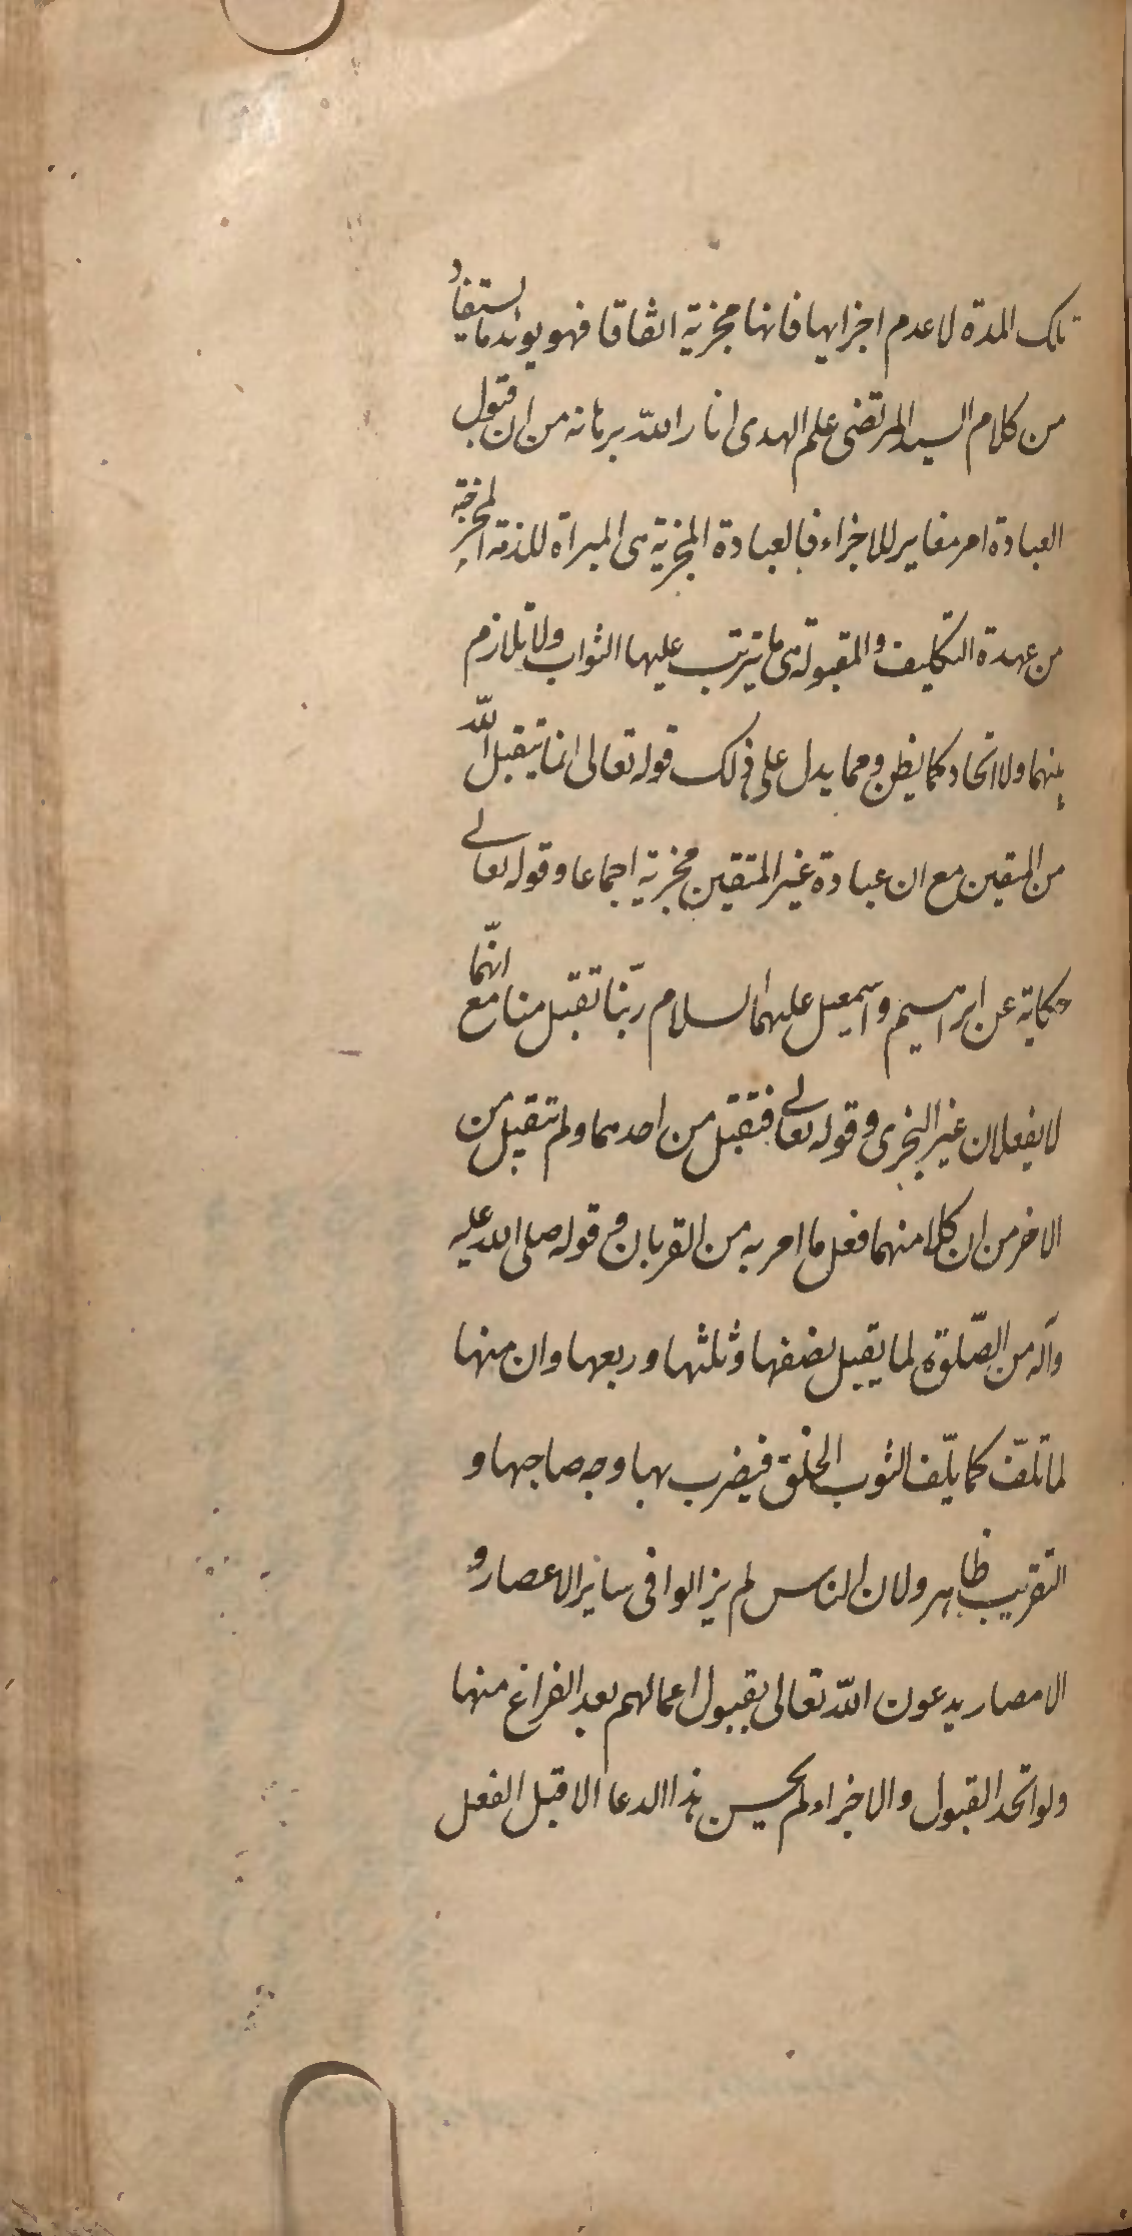 تلك المدة لا عدم اجزايها فانها مجزية اتفاقا فهو يويد ما يستفاد
من كلام السيد المرتضى علم الهدى انار الله برهانه من ان قبول
العبادة امر مغاير للاجزاء فالعبادة المجزية هى المبراة للذمة المخرجة
من عهدة التكليف والمقبولة هى ما يترتب عليها الثواب ولا تلازم
بينهما ولا اتحاد كما يظن ومما يدل على ذلك قوله تعالى انما يتقبل الله
من المتقين مع ان عبادة غير المتقين مجزية اجماعا وقوله تعالى
حكاية عن ابراهيم واسمعيل عليهما السلام ربّنا تقبّل منا مع انّهما
لا يفعلان غير المجزى وقوله تعالى فتقبّل من احدهما ولم يتقبل من
الاخر من ان كلا منهما فعل ما امر به من القربان وقوله صلى الله عليه
وآله من الصّلوة لما يقبل نصفها وثلثها وربعها وان منها
لما تلفّ كما يلّف الثوب الخلق فيضرب بها وجه صاحبها و
التقريب ظاهر ولان الناس لم يزالوا فى ساير الاعصار و
الامصار يدعون الله تعالى بقبول اعمالهم بعد الفراغ منها
ولو اتحد القبول والاجزاء لم يحسن هذا الدعا الا قبل الفعل